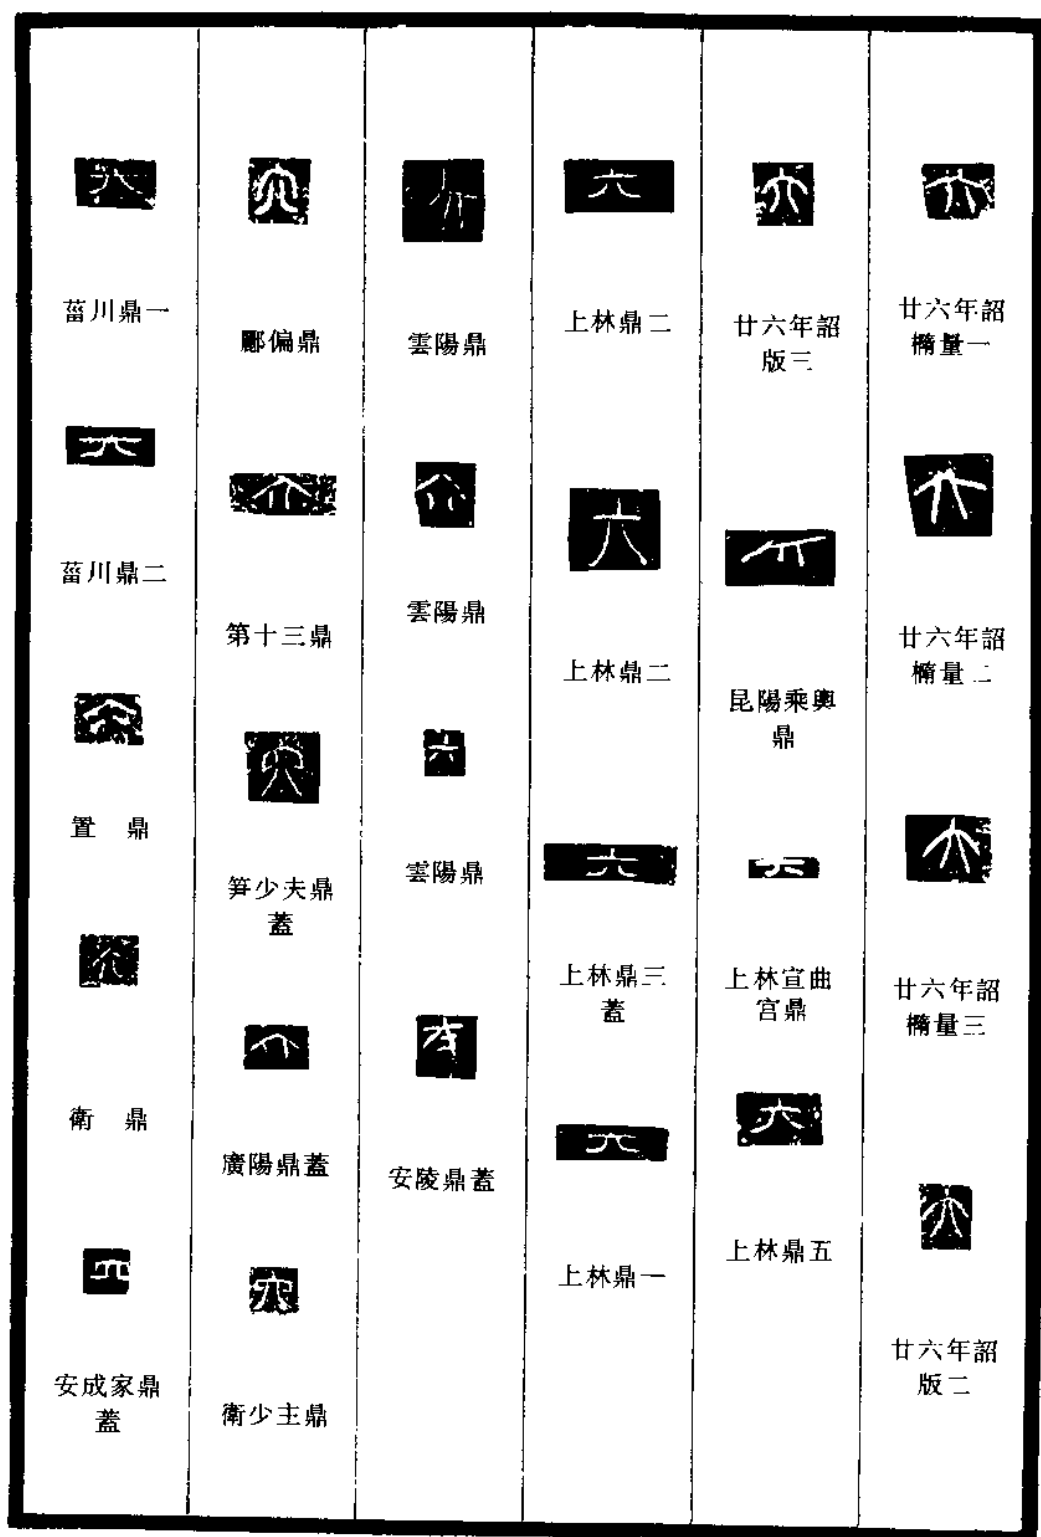 廿六年詔
橢量一
廿六年詔
橢量二
廿六年詔
橢量三
廿六年詔
版二
廿六年詔
版三
昆陽乘輿
鼎
上林宣曲
宫鼎
上林鼎五
上林鼎二
上林鼎二
上林鼎三
蓋
上林鼎一
雲陽鼎
雲陽鼎
雲陽鼎
安陵鼎蓋
偏鼎
第十三鼎
笋少夫鼎
蓋
廣陽鼎蓋
衛少主鼎
菑川鼎一
菑川鼎二
置 鼎
衛 鼎
安成家鼎
蓋